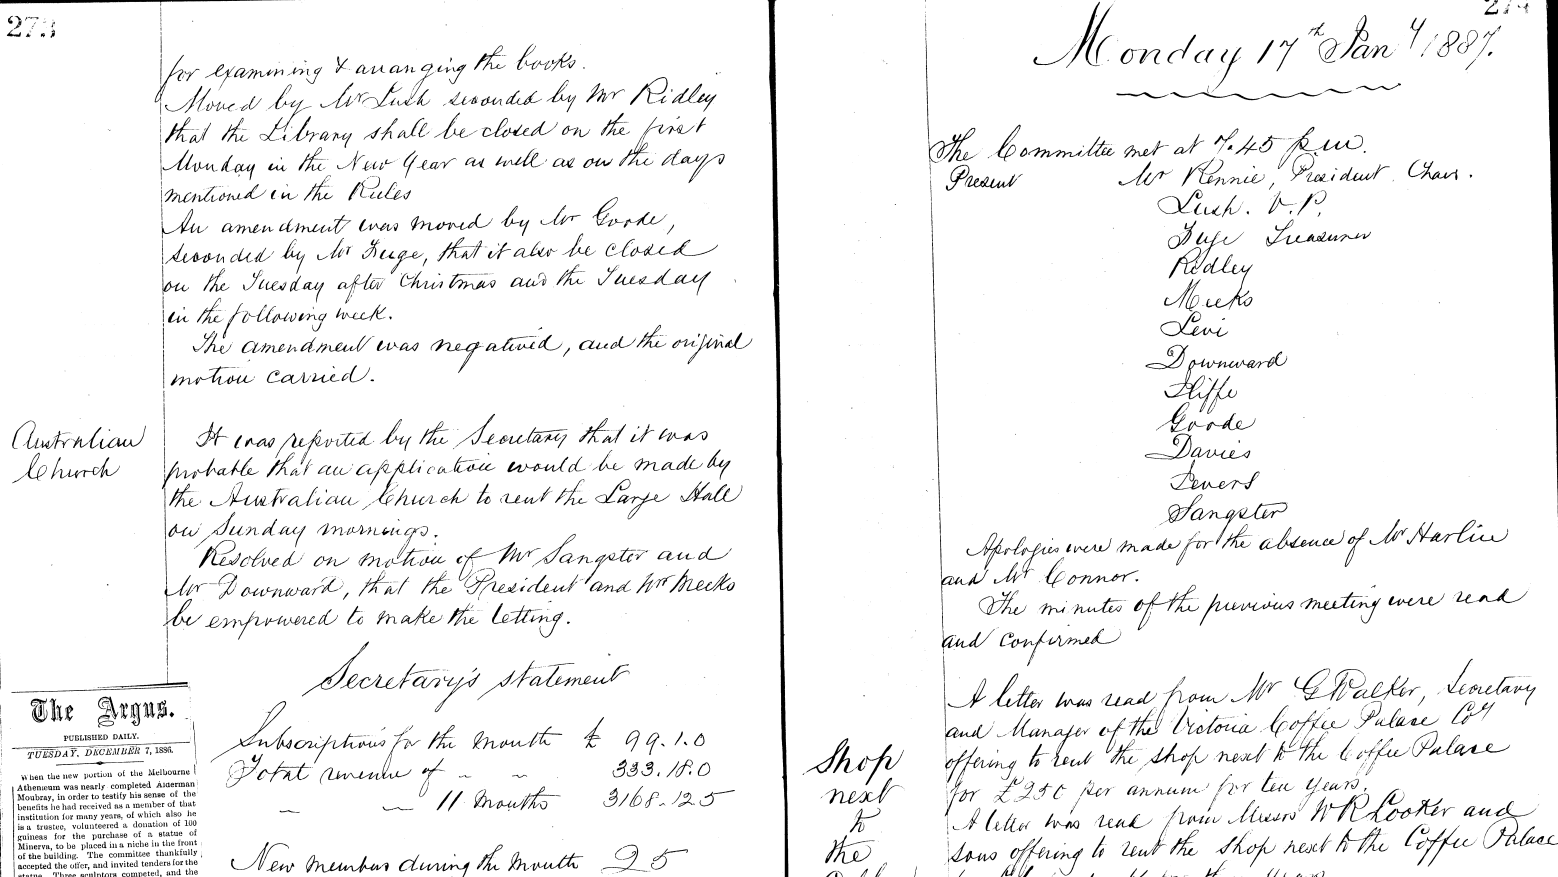 273
for examining & arranging the books.
Moved by Mr Lush seconded by Mr Ridley
that the Library shall be closed on the first
Monday in the New Year as well as on the days
mentioned in the Rules
An amendment was moved by Mr Goode,
seconded by Mr Fuge, that it also be closed
on the Tuesday after Christmas and the Tuesday
in the following week.
The amendment was negatived, and the original
motion carried.
Australian
Church
It was reported by the Secretary that it was
probable that an application would be made by
the Australian Church to rent the Large Hall
on Sunday mornings.
Resolved on motion of Mr Sangster and
Mr Downward, that the President and Mr Meeks
be empowered to make the letting.
Secretary's statement
Subscriptions for the Month £ 99.1.0
Total revenue of " " 333.18.0
" " 11 Months 3168.12.5
New members during the month 25
The Argus.
PUBLISHED DAILY.
TUESDAY, DECEMBER 7, 1886.
When the new portion of the Melbourne
Athenæum was nearly completed Alderman
Moubray, in order to testify his sense of the
benefits he had received as a member of that
institution for many years, of which also he
is a trustee, volunteered a donation of 100
guineas for the purchase of a statue of
Minerva, to be placed in a niche in the front
of the building. The committee thankfully
accepted the offer, and invited tenders for the
statue. Three sculptors competed, and the
274
Monday 17th Jany 1887.
The Committee met at 7.45 p.m.
Present Mr Rennie, President. Chair.
Lush. V.P.
Fuge Treasurer
Ridley
Meeks
Levi
Downward
Iliffe
Goode
Davies
Levers
Sangster
Apologies were made for the absence of Mr Harlin
and Mr Connor.
The minutes of the previous meeting were read
and confirmed
A letter was read from Mr G Walker, Secretary
and Manager of the Victoria Coffee Palace Coy
offering to rent the shop next to the Coffee Palace
for £250 per annum for ten years.
Shop
next
to
the
A letter was read from Messrs W R Looker and
sons offering to rent the shop next to the Coffee Palace